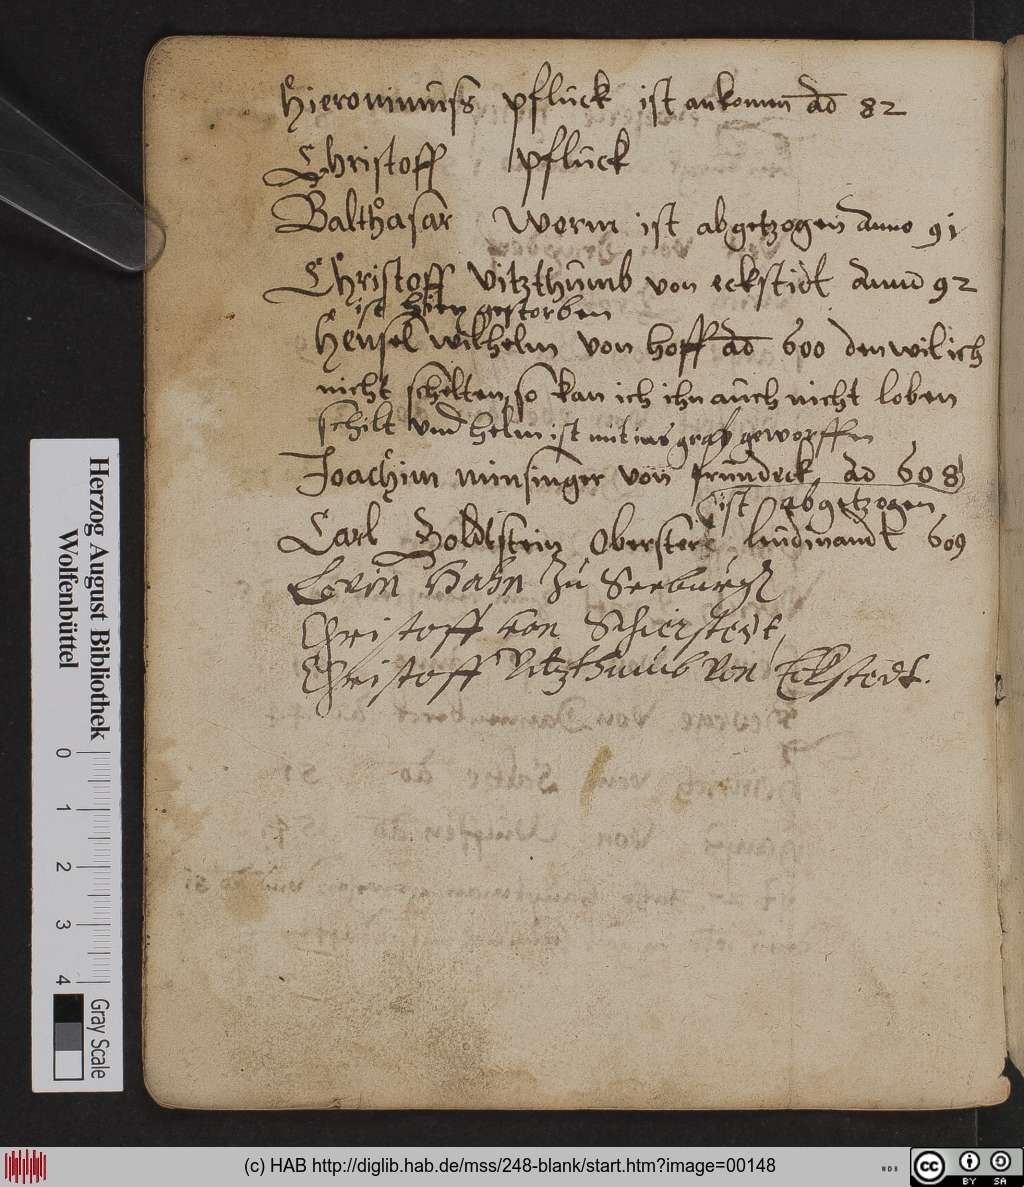 Hieronimuss pflück ist ankomm ad 82
Christoff pflück
Balthasar Worm ist abgetzogen Anno 91
Christoff vitzthumb von eckstedt Anno 92
ist hien gestorben
Hensel wilhelm von hoff ad 600 den wil ich
nicht schelten, so kan ich ihn auch nicht loben
schilt und helm ist mit ins grab geworffen
Joachim minsinger von frundeck ad 608
ist abgetzogen
Carl Goldtstein Oberster 609
Levin Hahn zu Seeburgk
Christoff von Schierstedt
Christoff Vitzthumb von Eckstedt.
Herzog August Bibliothek
Wolfenbüttel
0 1 2 3 4
Gray Scale
(c) HAB http://diglib.hab.de/mss/248-blank/start.htm?image=00148
WDB
cc
BY SA